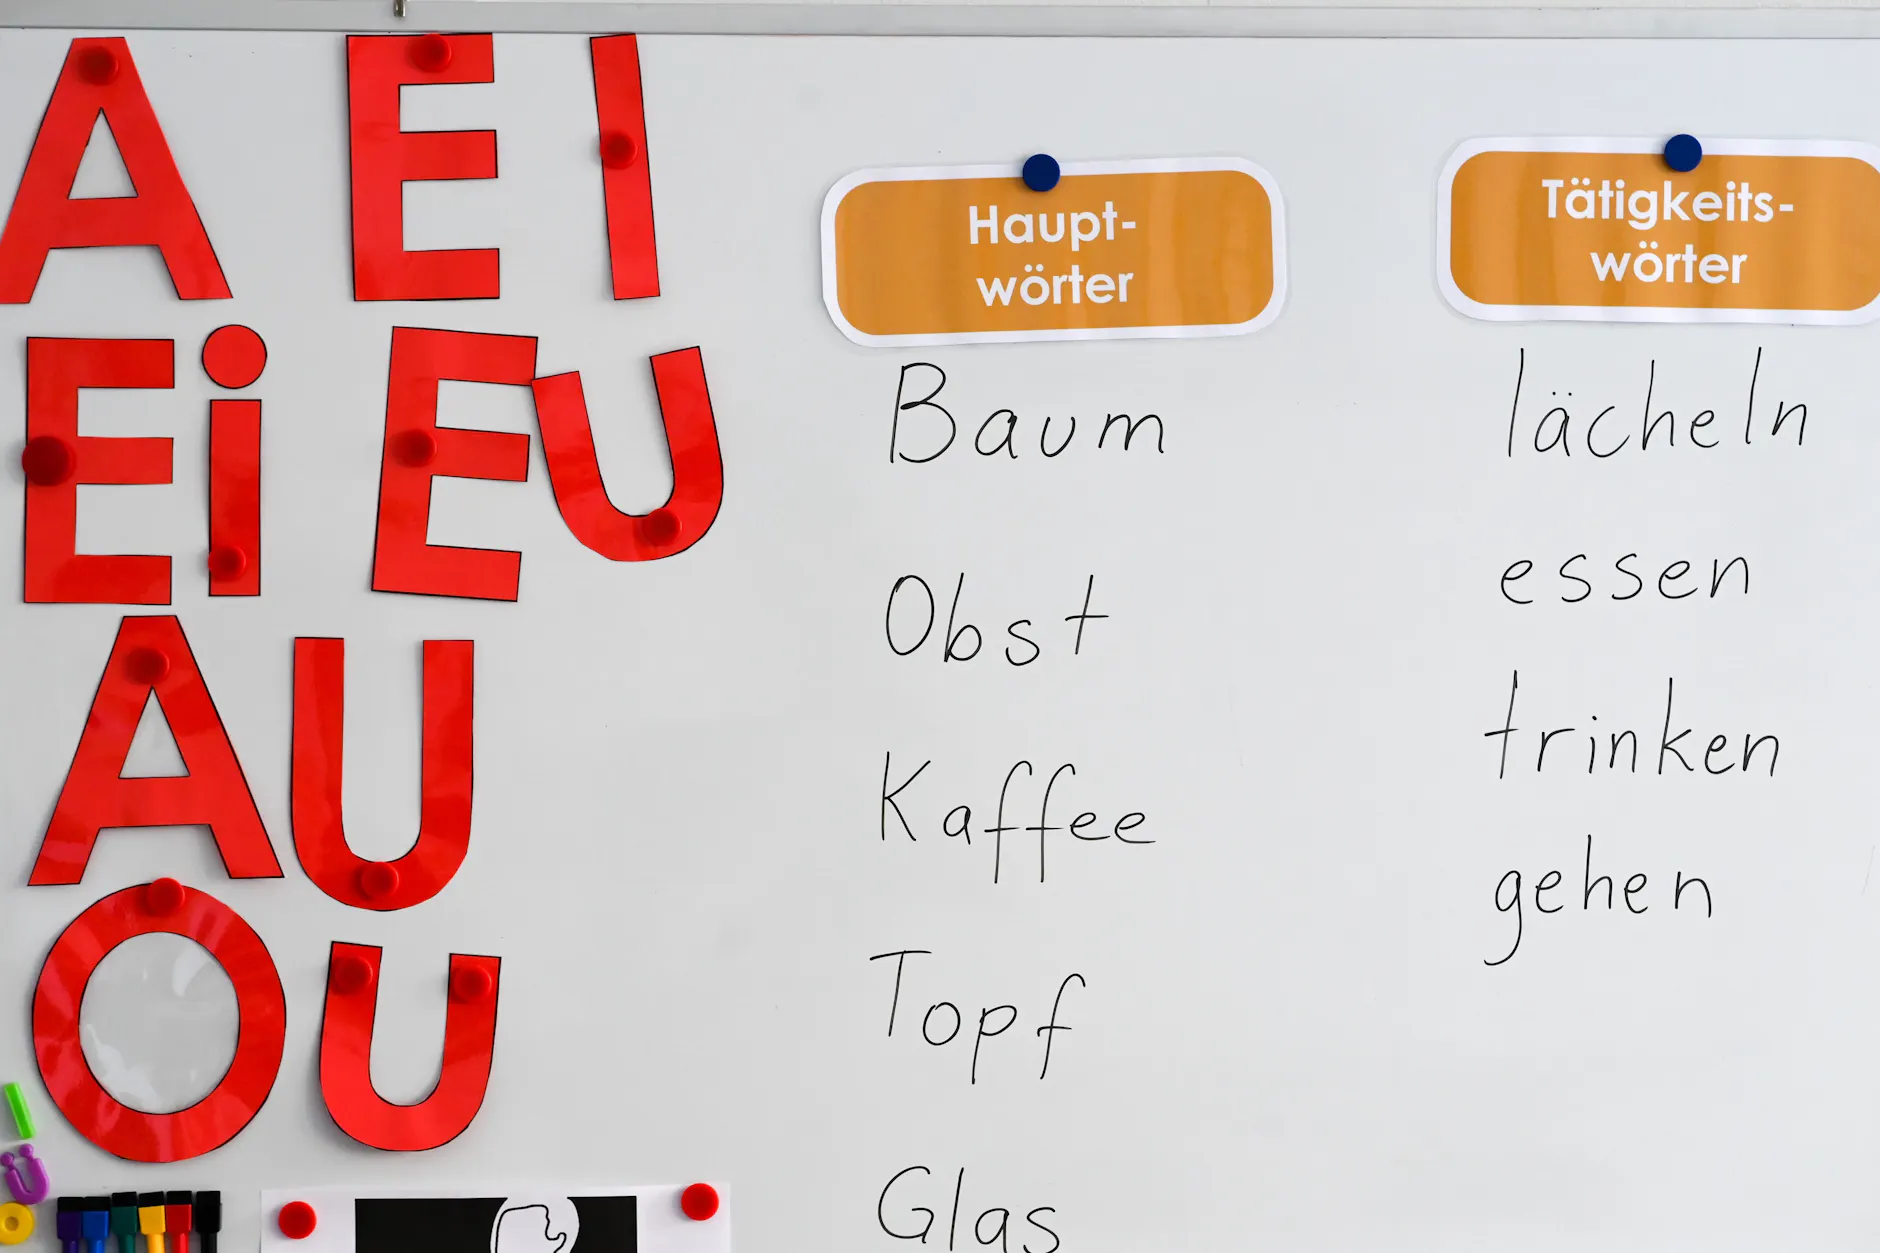 A E I
Ei EU
AU
OU
Haupt-
wörter
Baum
Obst
Kaffee
Topf
Glas
Tätigkeits-
wörter
lächeln
essen
trinken
gehen